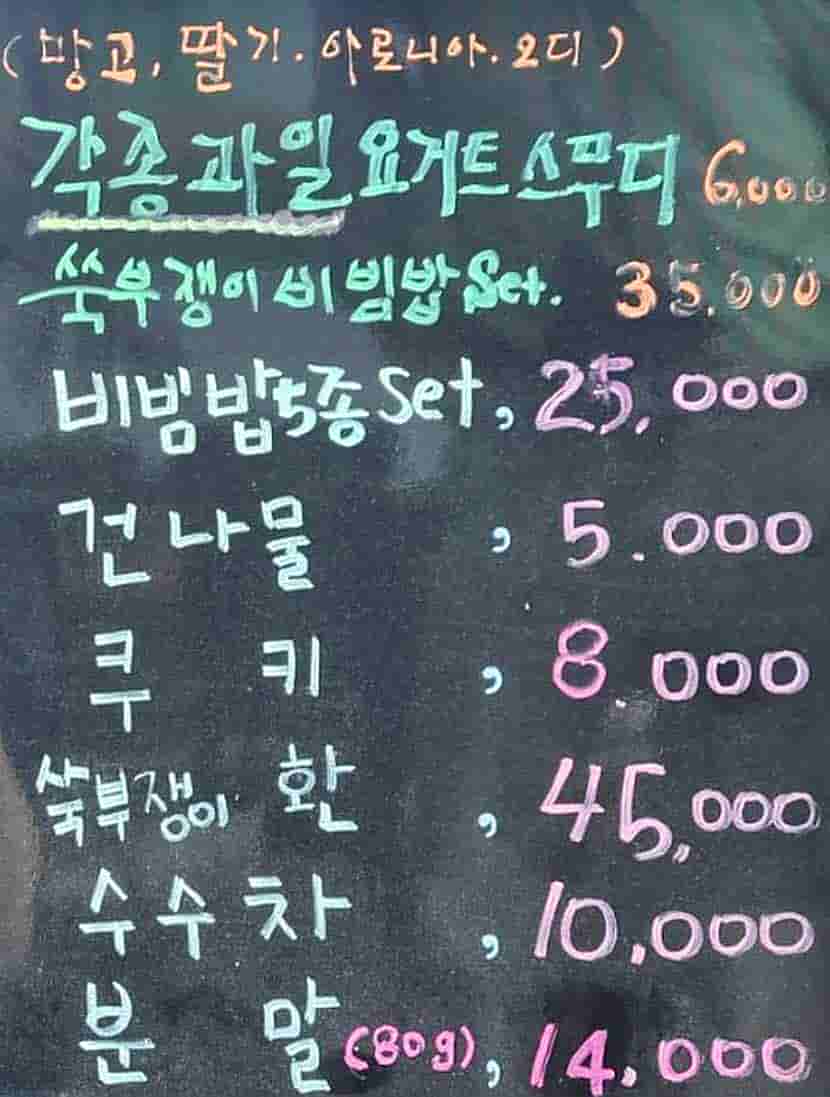 (망고, 딸기. 아로니아. 오디)
각종과일 요거트스무디 6,000
쑥부쟁이비빔밥 Set. 35.000
비빔밥5종Set, 25,000
건나물 , 5.000
쿠 키 , 8 000
쑥부쟁이 환 , 45,000
수수차 , 10,000
분 말 (80g), 14.000